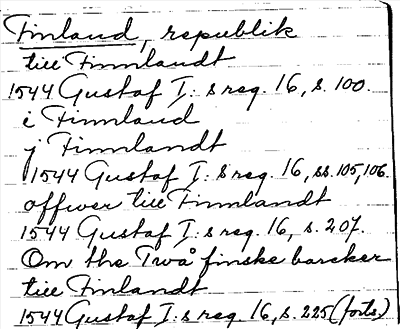 Finland, republik
till Finnlandt
1544 Gustaf I: s reg. 16, s. 100.
i Finnland
j Finnlandt
1544 Gustaf I: s reg. 16, ss. 105, 106.
offwer till Finnlandt
1544 Gustaf I: s reg. 16, s. 207.
Om the Twå finske barcker
till Finlandt
1544 Gustaf I: s reg. 16, s. 225 (forts)